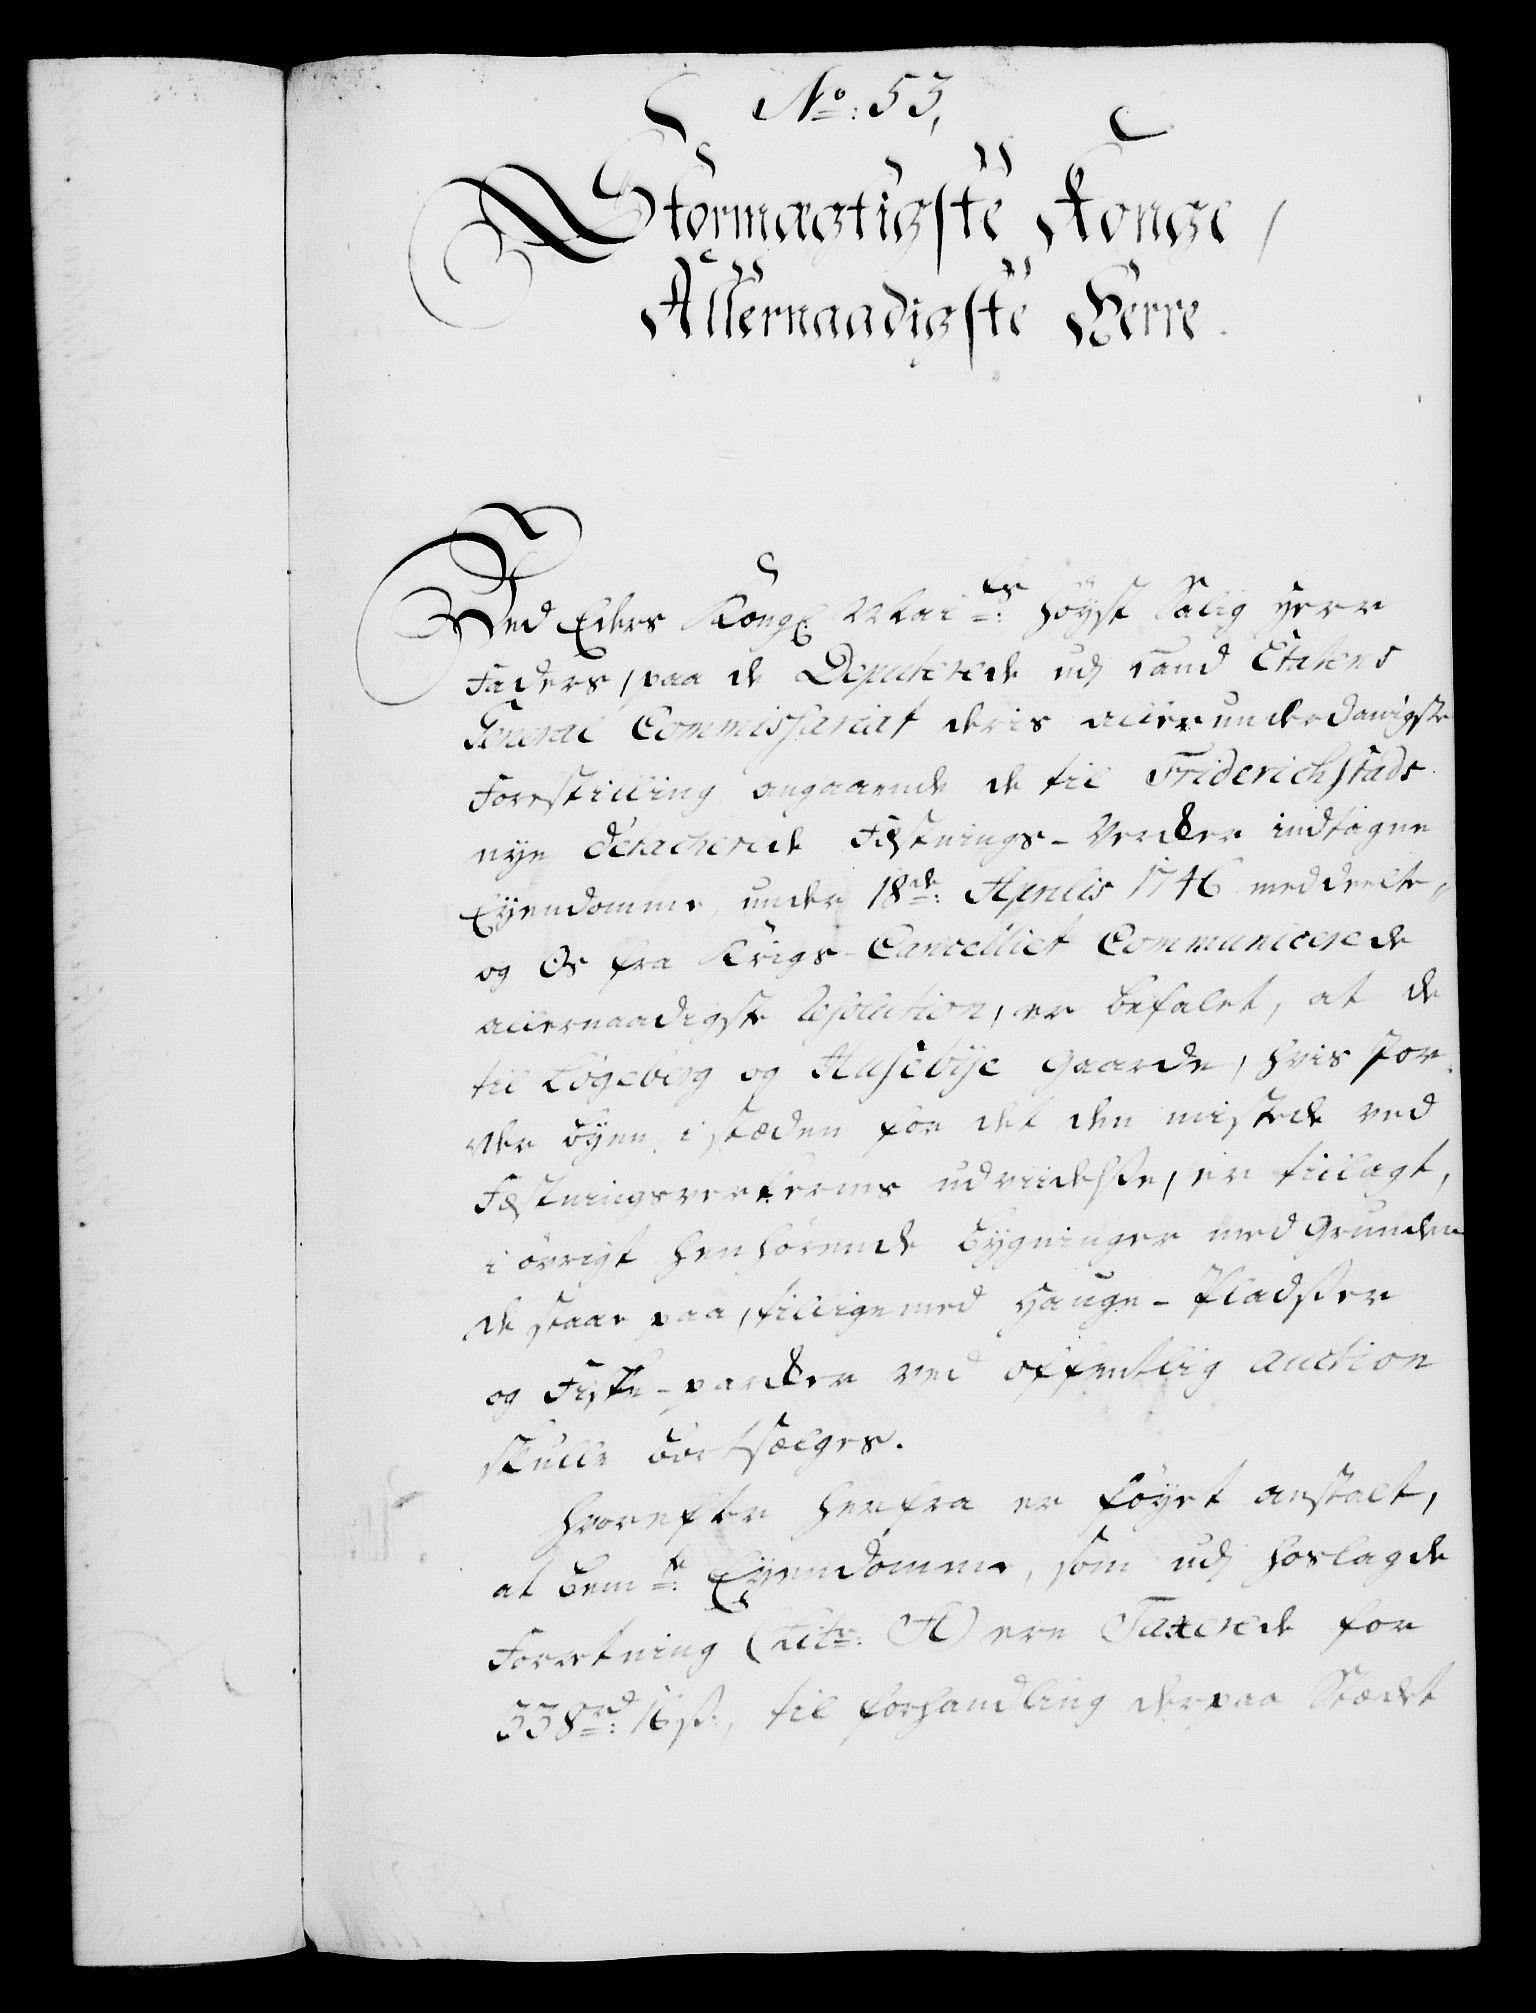 No: 53,
Stormægtigste Konge,
Allernaadigste Herre.
Ved Eders Kongl: Mai:ts Høyst Salig Herr
Faders, paa de Deputerede udj Land Etatens
General Commissariat deris allerunderdanigste
Forestilling angaaende de til Friderichstads
nye detacherede Fæstnings-Verker indtagne
Eyendomme, under 18de: Aprilis 1746 meddeelte,
og Os fra Krigs-Cancelliet Communicerede
allernaadigste Resolution, er befalet, at de
til Løgeberg og Husebÿe Gaarde, hvis Jor,
der Byen, i stæden for det den mistede ved
Fæstningsverkernes udviidelße, er tillagt,
i øvrigt henhørende Bygninger med Grunden
de staar paa, tilligemed Hauge-Pladßer
og Fiske-parker ved offentlig Auction
skulle bortsælges.
Hvorefter herfra er føyet anstalt,
at bem:te Eyendomme, som udj hoslagde
Forretning (Litr: A) ere Taxerede for
338rd: 16 ß:, til forhandling derpaa Stædet